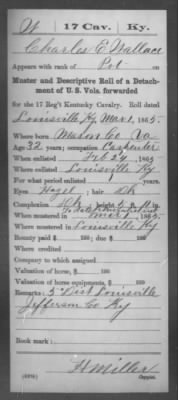 W 17 Cav. Ky.
Charles E. Wallace
Appears with rank of Pvt
Muster and Descriptive Roll of a Detachment
ment of U. S. Vols. forwarded
for the 17 Reg't Kentucky Cavalry. Roll dated
Louisville, Ky Mar 1, 1865.
Where born Mason Co Va
Age 32 years; occupation Carpenter
When enlisted Feb 24, 1865.
Where enlisted Louisville Ky
For what period enlisted years.
Eyes Hazel; hair Dk
Complexion height 5 ft. in.
When mustered in Mar 1, 1865.
Where mustered in Louisville Ky
Bounty paid $ 100; due $ 100
Where credited
Company to which assigned
Valuation of horse, $ 100
Valuation of horse equipments, $ 100
Remarks: 5" Dist Louisville
Jefferson Co Ky
Book mark:
H Miller
Copyist.